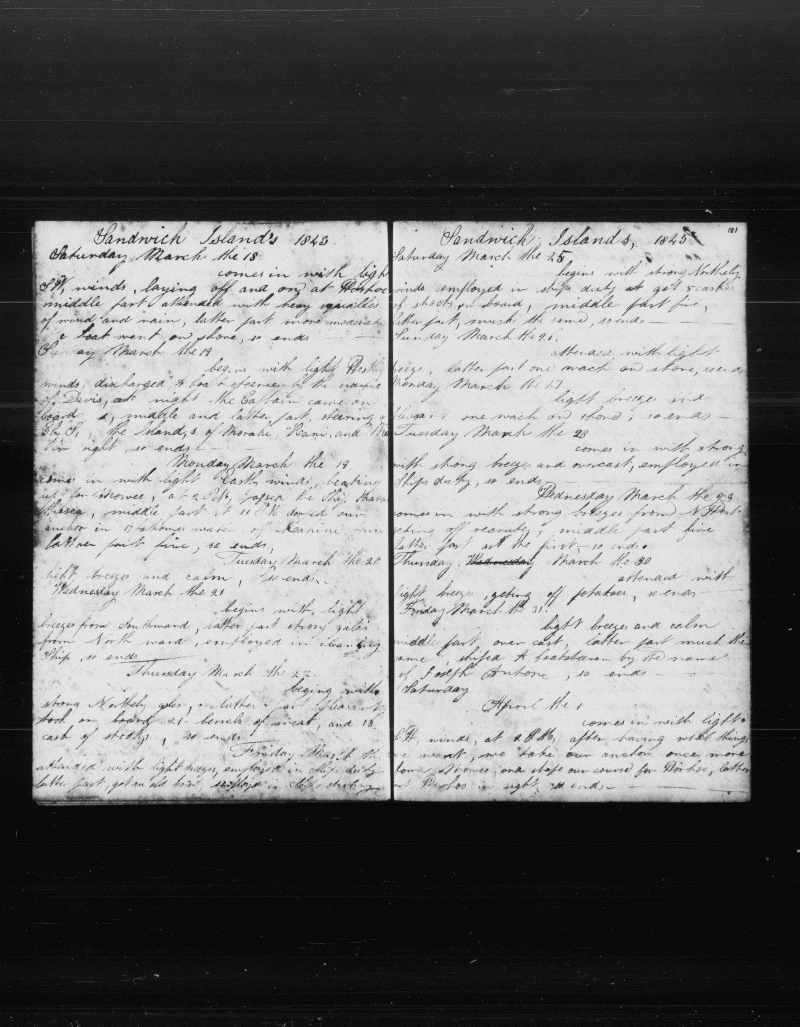 Sandwich Island's 1843.
Saturday March the 18
comes in with ligh
S.W. winds, laying off and on at
middle part attended with heavy squalles
of wind and rain, latter part more moderate
a boat went on shore, so ends
Sunday March the 19
begins with light
winds, discharged A boat steerer by the name
of Davis, at night the Captain came on
board, middle and latter part, steering
the Island,s of Morokai, and
in sight, so ends
Monday March the 19
comes in with light Easterly winds, beating
up for Mowee, at 2 P.M, the Ship
middle part at our
anchor in 17 water
latter part fine, so ends,
Tuesday March the 20
light breezes and calm, so ends.
Wednesday March the 21
begins with light
breezes from Southward, latter part strong gales
from North ward, employed in cleaning
Ship, so ends
Thursday March the 22
begins with
strong Northely gales, latter part pleasant
took on board 21 barrels of meat, and 13
cask of so ends
Friday March the
attended with light breezes, employed in ships duty
latter part, got employed in Ships duty
Sandwich Islands, 1845 181
Saturday March the 25,
begins with strong Northely
winds employed in ships duty, at got 5 casks
of on board, middle part fine,
latter part, much the same, so ends
Sunday March the 26,
attended, with light
breeze, latter part one wach on shore, so ends
Monday March the 27
light breeze and
pleasant one wach on shore, so ends
Tuesday March the 28
comes in with strong
with strong breezes and overcast, employed in
Ships duty, so ends
Wednesday March the 29
comes in with strong breezes from N.
geting off recruits, middle part fine
latter part as the first, so ends.
Thursday Wednesday March the 30
attended with
light breeze, geting of potatoes, so ends
Friday March the 31.
light breeze and calm
middle part over cast, latter part much the
same, shiped A boatsteerer by the name
of Joseph Antone, so ends
Saturday
April the 1
comes in with light
winds, at 2 P.M, after having what things
we want, we take our anchor once more
from Mowee, and shape our course for Woahoo, latter
part Woahoo in sight so ends